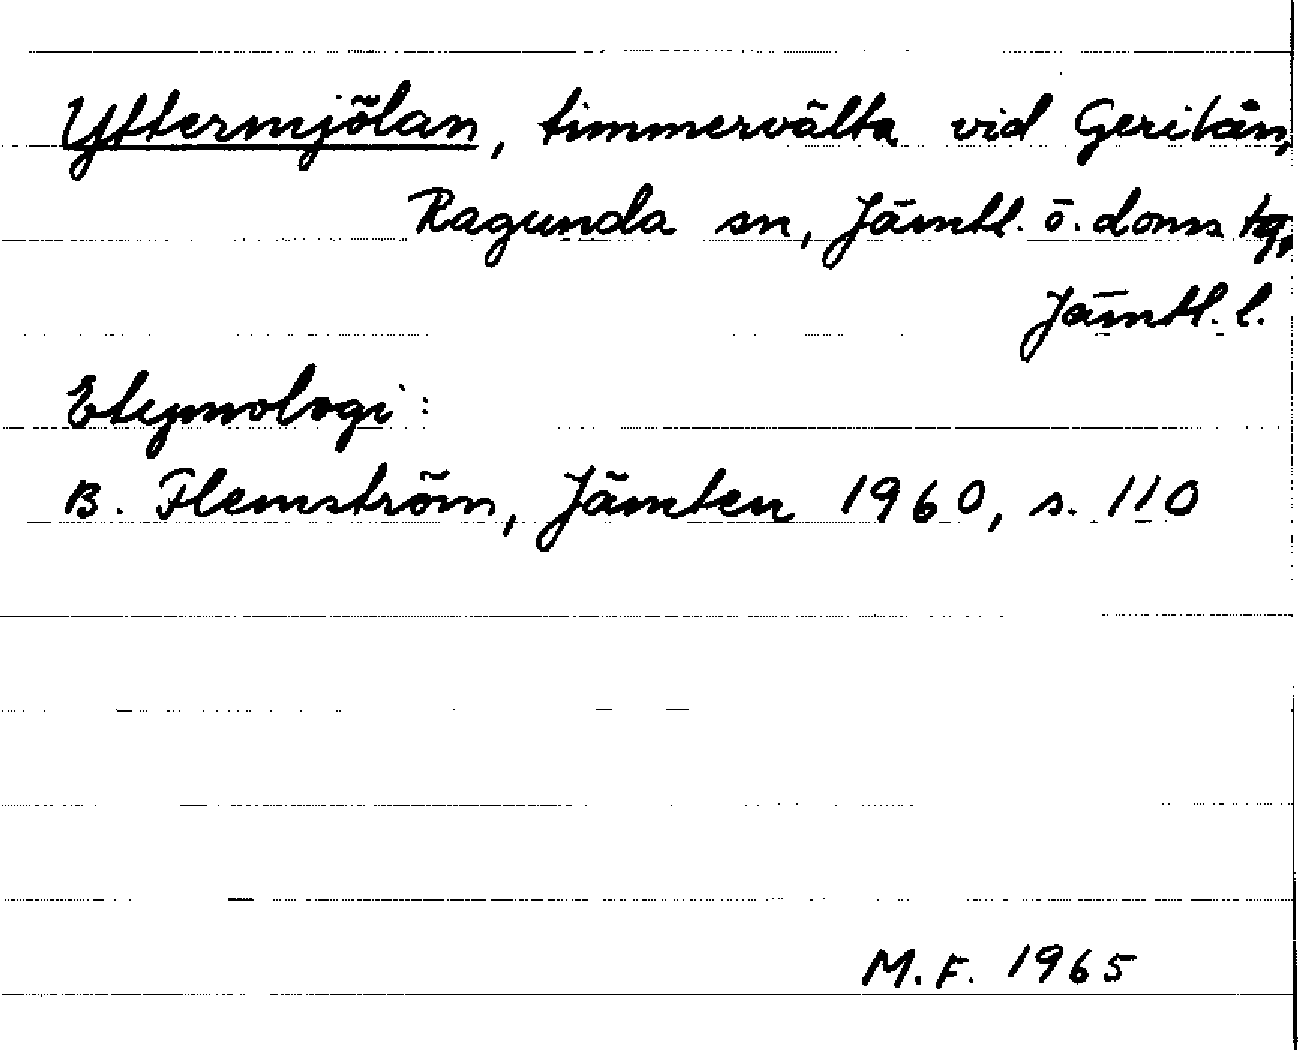 Yttermjölan, timmervälta vid Geritån,
Ragunda sn, Jämtl. ö. doms tg,
Jämtl. l.
Etymologi:
B. Flemström, Jämten 1960, s. 110
M.F. 1965